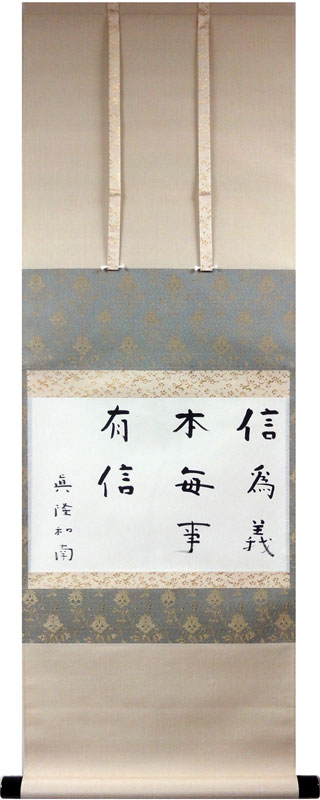 信為義
本毎事
有信
眞陸和南